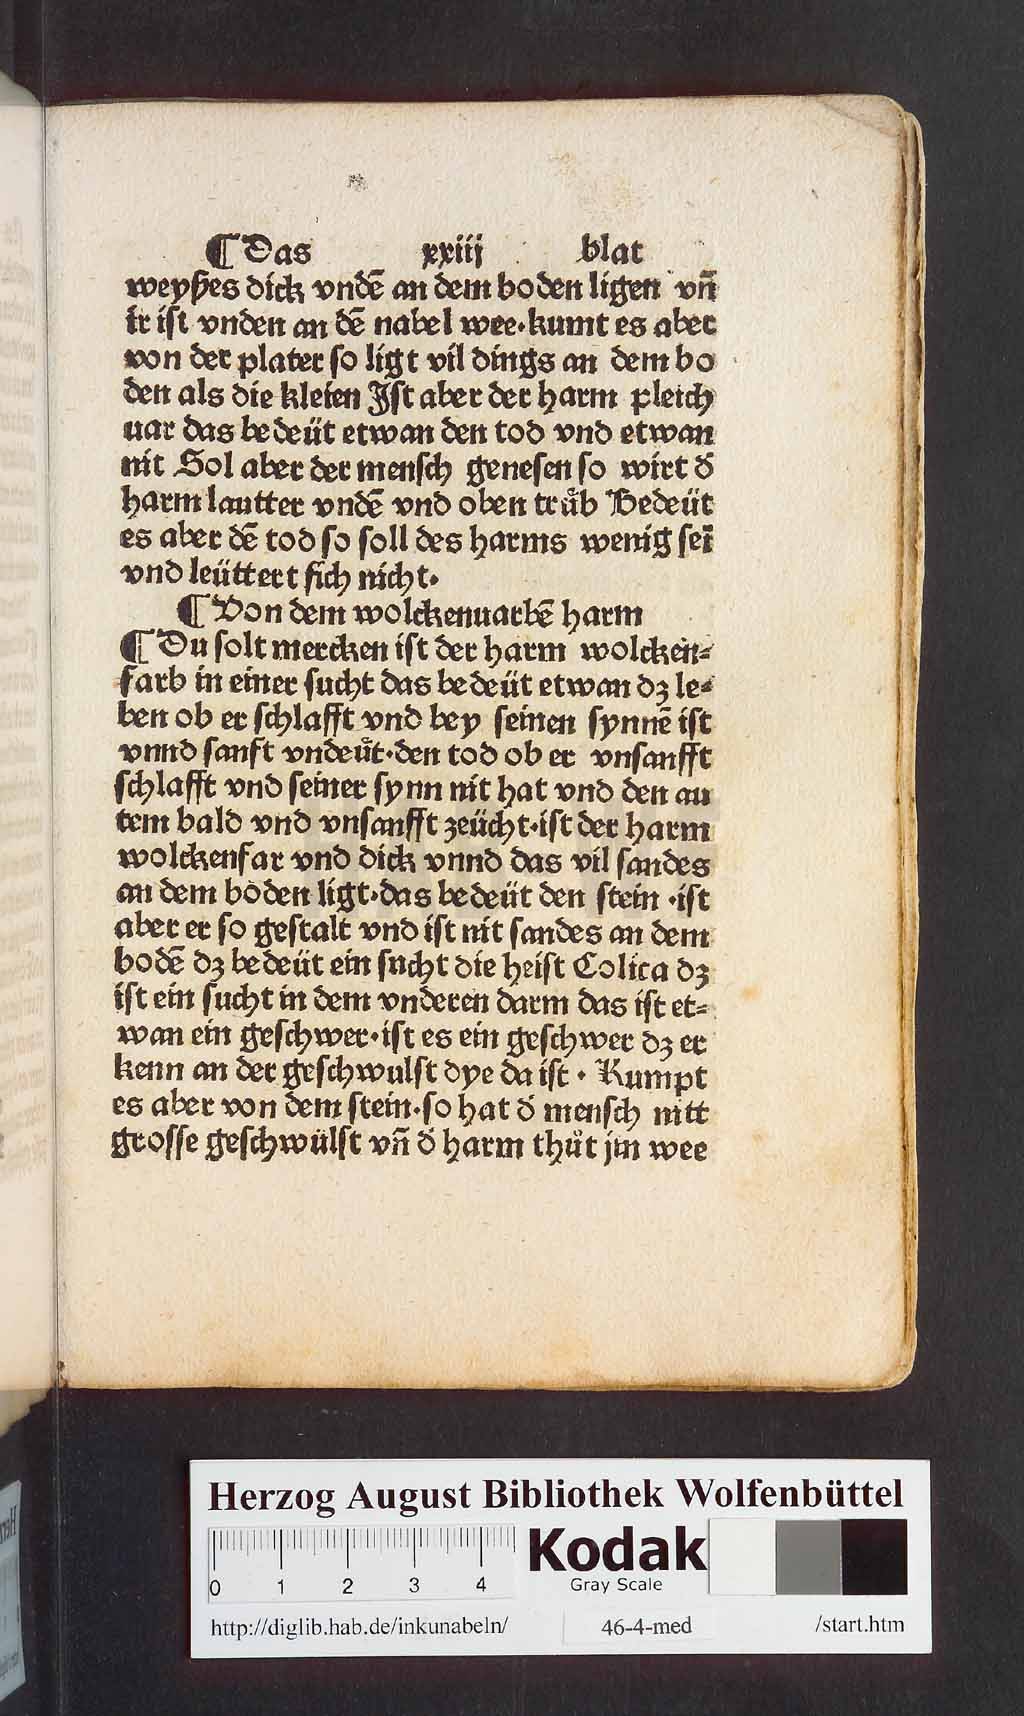 ¶ Das xxiij blat
weyſſes dick vndē an dem boden ligen vñ
ir iſt vnden an dē nabel wee·kumt es aber
von der plater ſo ligt vil dings an dem bo
den als die kleien Jſt aber der harm pleich
uar das bedeüt etwan den tod vnd etwan
nit Sol aber der menſch geneſen ſo wirt d᷑
harm lautter vndē vnd oben truͤb Bedeüt
es aber dē tod ſo ſoll des harms wenig ſeī
vnd leüttert ſich nicht·
¶ Von dem wolckenuarbē harm
¶ Du ſolt mercken iſt der harm wolcken⸗
farb in einer ſucht das bedeüt etwan dz le⸗
ben ob er ſchlafft vnd bey ſeinen ſynnē iſt
vnnd ſanft vndeuͤt·den tod ob er vnſanfft
ſchlafft vnd ſeiner ſynn nit hat vnd den au
tem bald vnd vnſanfft zeücht·iſt der harm
wolckenfar vnd dick vnnd das vil ſandes
an dem boden ligt·das bedeüt den ſtein ·iſt
aber er ſo geſtalt vnd iſt nit ſandes an dem
bodē dz bedeüt ein ſucht die heiſt Colica dz
iſt ein ſucht in dem vnderen darm das iſt et⸗
wan ein geſchwer·iſt es ein geſchwer dz er
kenn an der geſchwulſt dye da iſt · Kumpt
es aber von dem ſtein·ſo hat d᷑ menſch nitt
groſſe geſchwülſt vñ d᷑ harm thuͤt jm wee
Herzog August Bibliothek Wolfenbüttel
0 1 2 3 4
Kodak
Gray Scale
http://diglib.hab.de/inkunabeln/ 46-4-med /start.htm